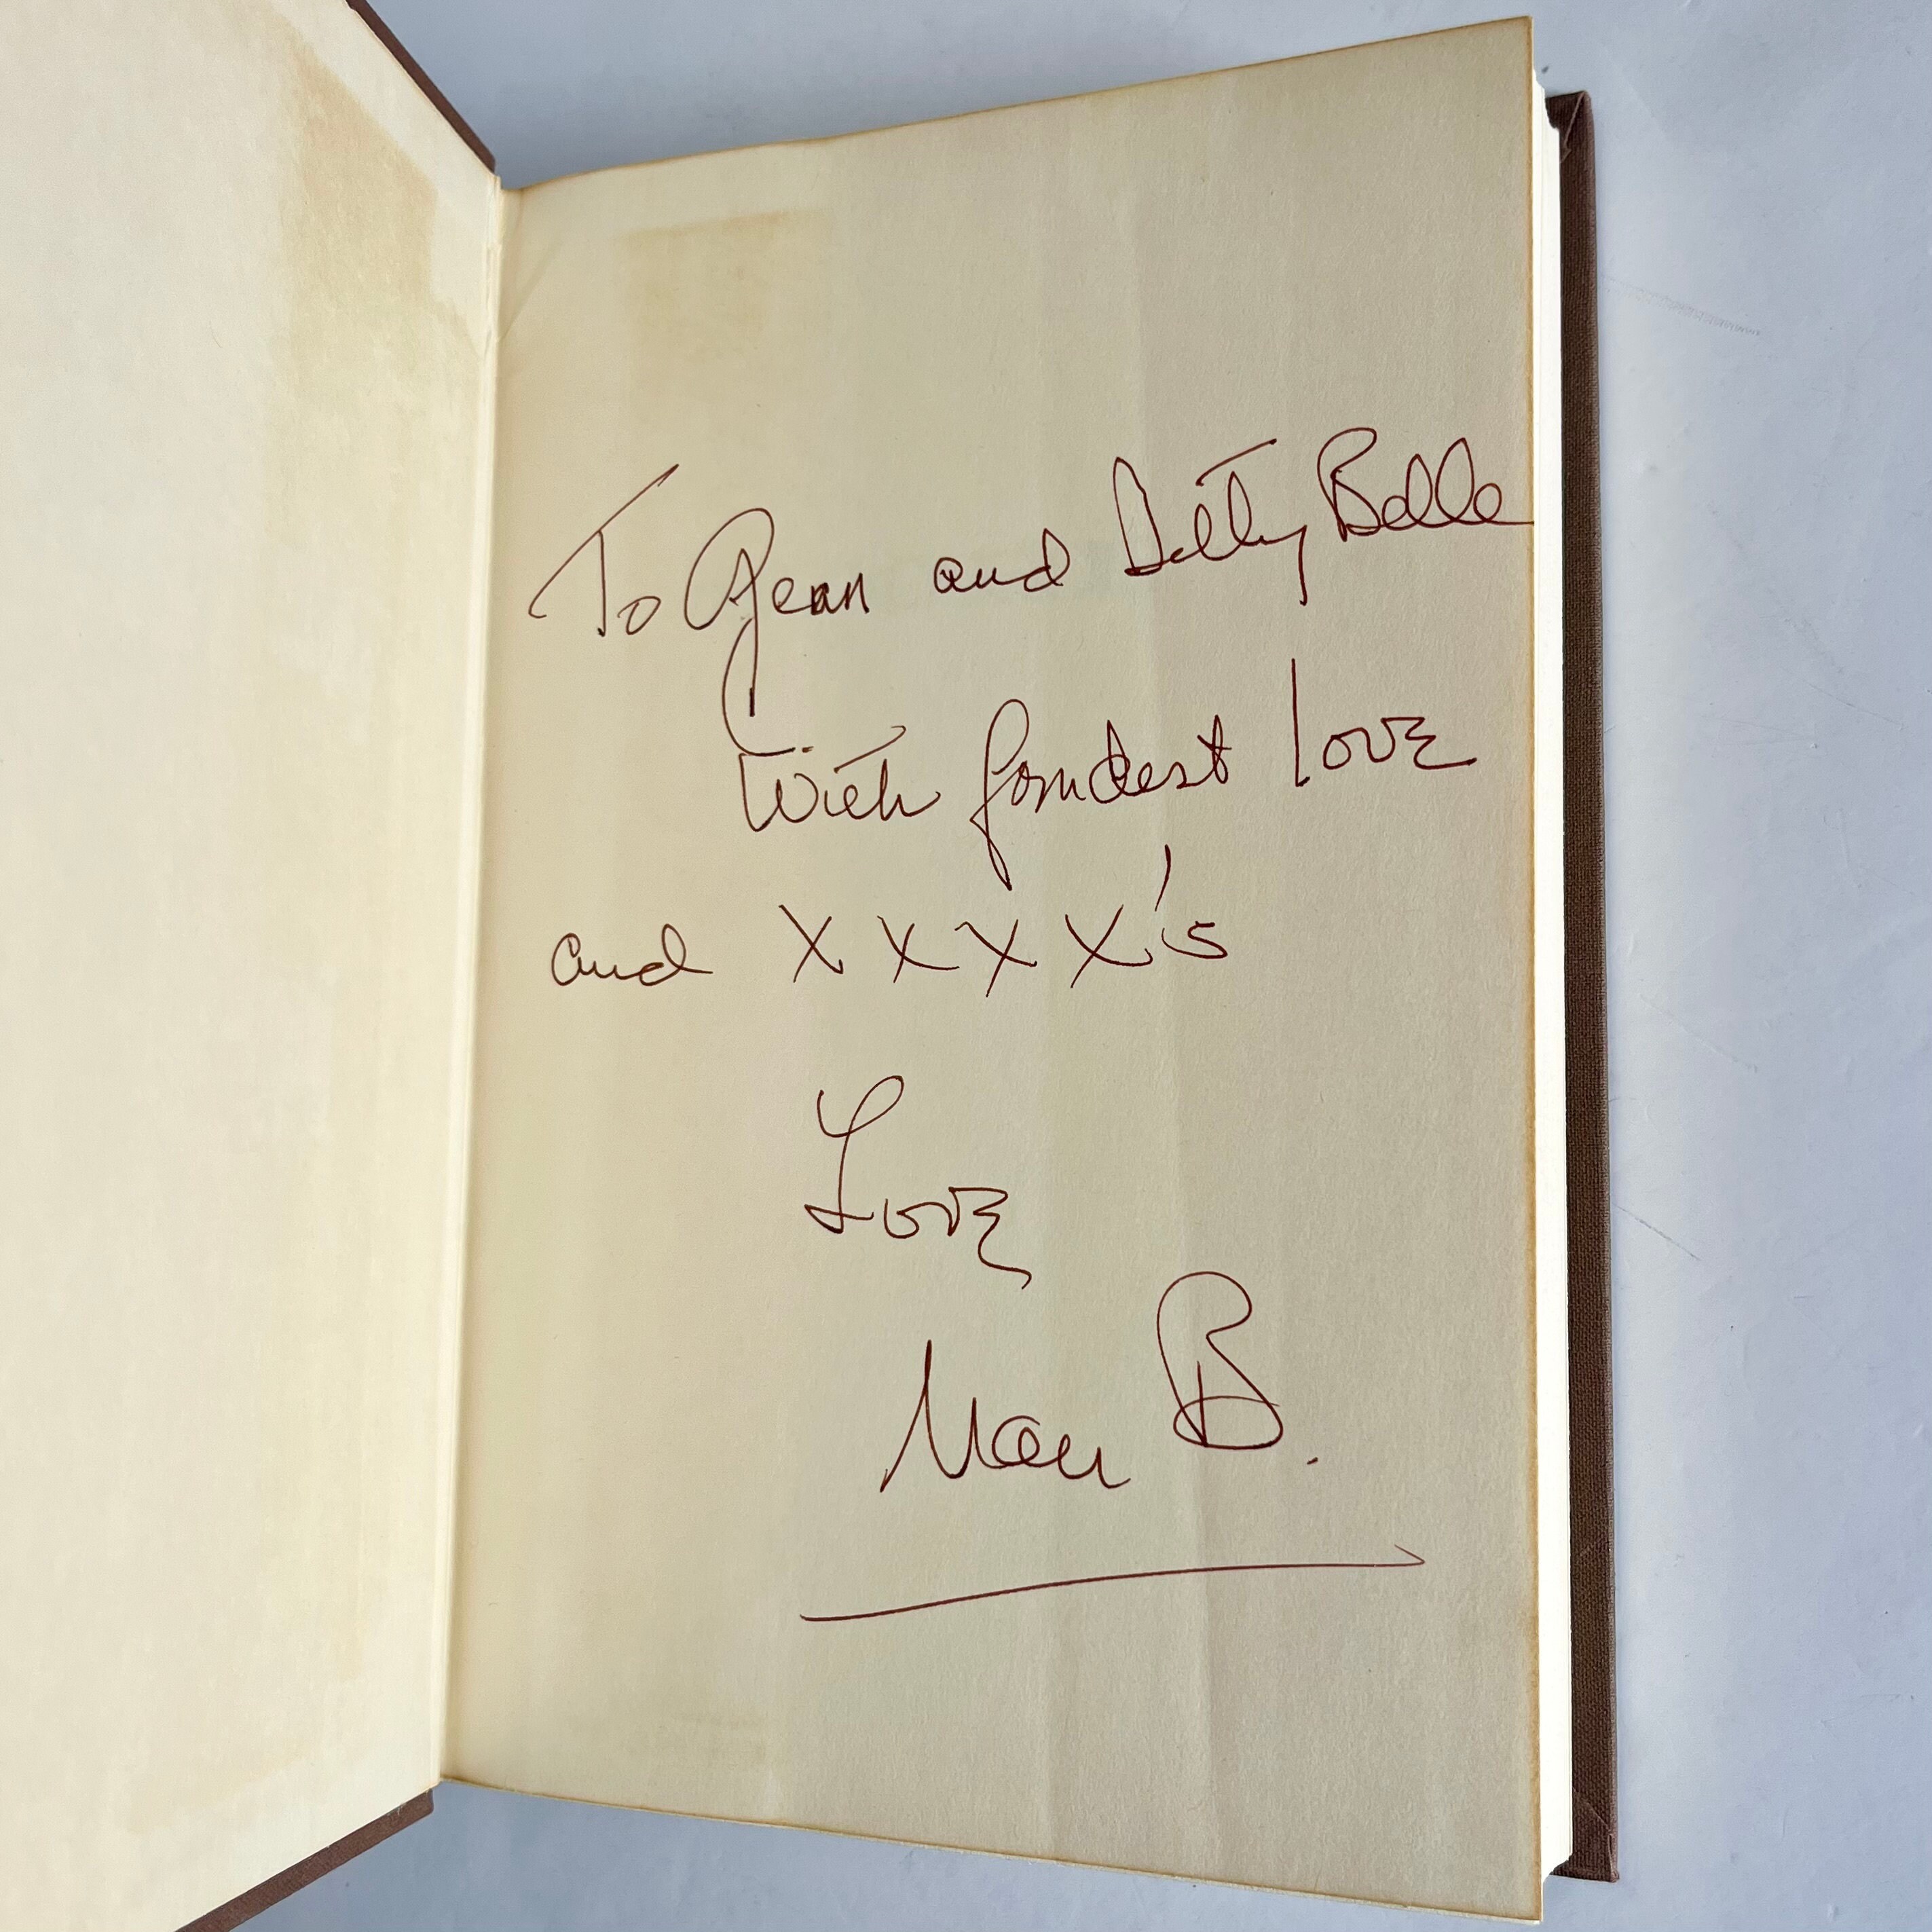 To Jean and Betty Belle
With fondest love
and X X X X's
Love
B.